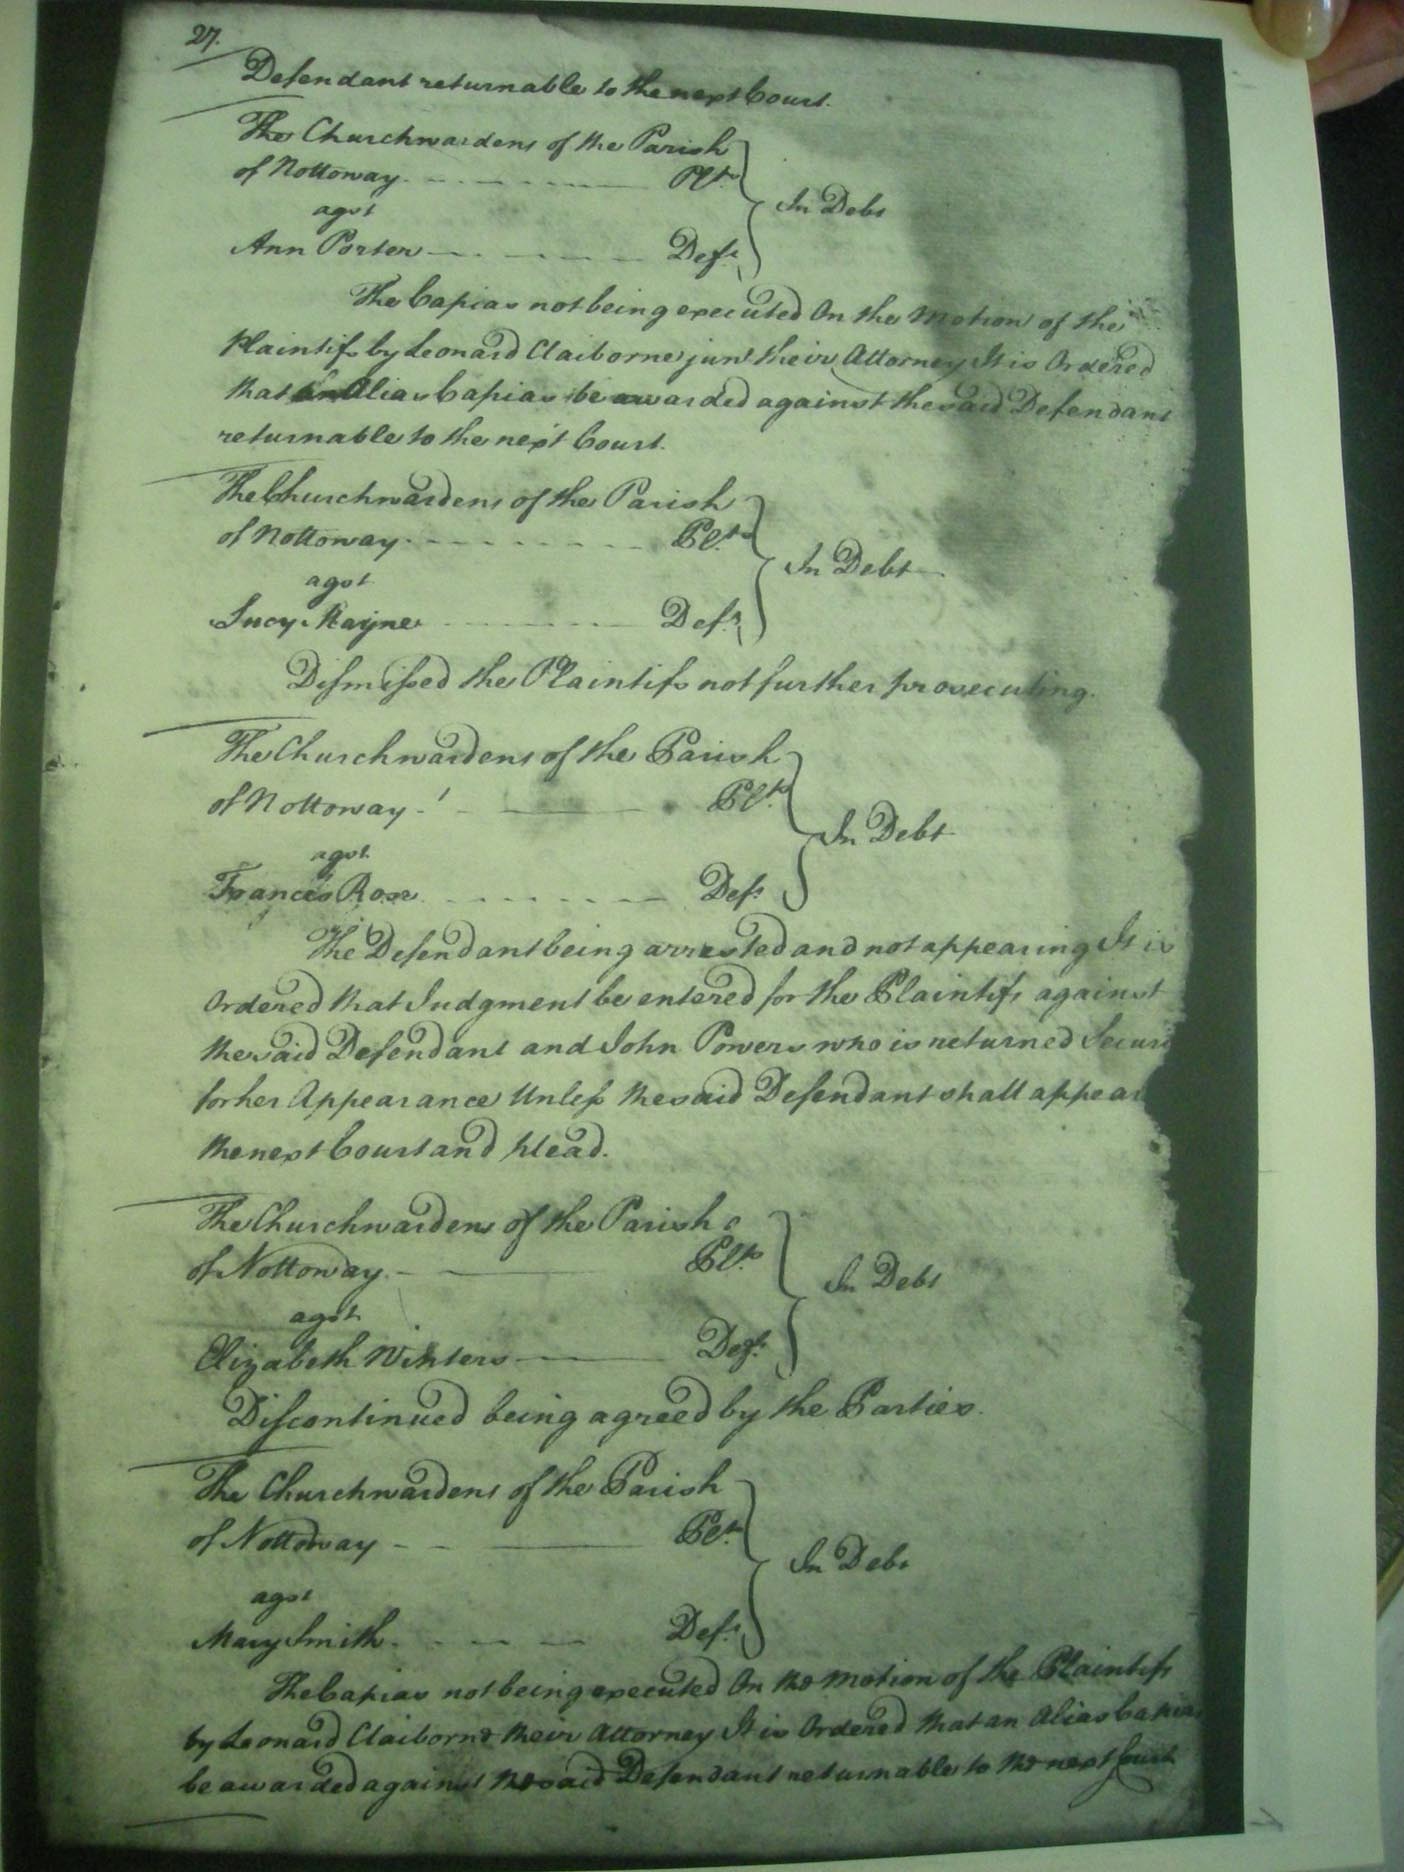 27.
Defendant returnable to the next Court.
The Churchwardens of the Parish
of Nottoway Plts
agst
Ann Porter Deft.
In Debt
The Capias not being executed On the Motion of the
Plaintifs by Leonard Claiborne junr. their Attorney It is Ordered
that an Alias Capias be awarded against the said Defendant
returnable to the next Court.
The Churchwardens of the Parish
of Nottoway Plts
agst
Lucy Mayne Deft.
In Debt
Dismissed the Plaintifs not further prosecuting.
The Churchwardens of the Parish
of Nottoway Plts
agst
Frances Rose Deft.
In Debt
The Defendant being arrested and not appearing It is
Ordered that Judgment be entered for the Plaintifs against
the said Defendant and John Powers who is returned Securi
for her Appearance Unless the said Defendant shall appear
the next Court and plead.
The Churchwardens of the Parish
of Nottoway Plts
agst
Elizabeth Winters Deft.
In Debt
Discontinued being agreed by the Parties.
The Churchwardens of the Parish
of Nottoway Plts
agst
Mary Smith Deft.
In Debt
The Capias not being executed On the Motion of the Plaintifs
by Leonard Claiborne their Attorney It is Ordered that an Alias Capias
be awarded against the said Defendant returnable to the next Court